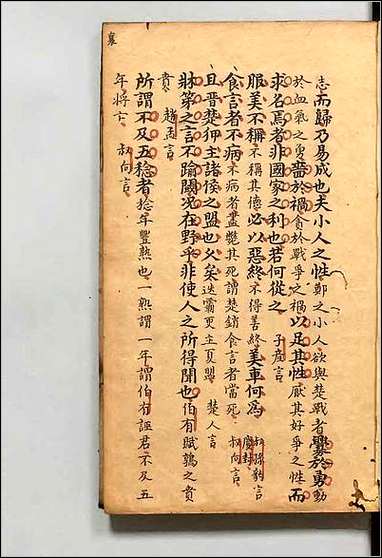 襄
志而歸乃易成也夫小人之性鄭之小人欲與楚戰者釁於勇動
於血氣之勇嗇於禍貪於戰爭之禍以足其性厭其好爭之性而
求名焉者非國家之利也若何從之 子產言
服美不稱不稱其德必以惡終不得善終美車何為 叔孫豹言慶封
食言者不病不病者盡斃其死謂楚錯食言者當死 叔向言
且晉楚狎主諸侯之盟也久矣迭霸更主夏盟 楚人言
牀笫之言不踰閾況在野乎非使人之所得聞也伯有賦鶉之賁
賁 趙孟言
所謂不及五稔者稔年豐熟也一熟謂一年謂伯有誣君不及五
年將亡 叔向言